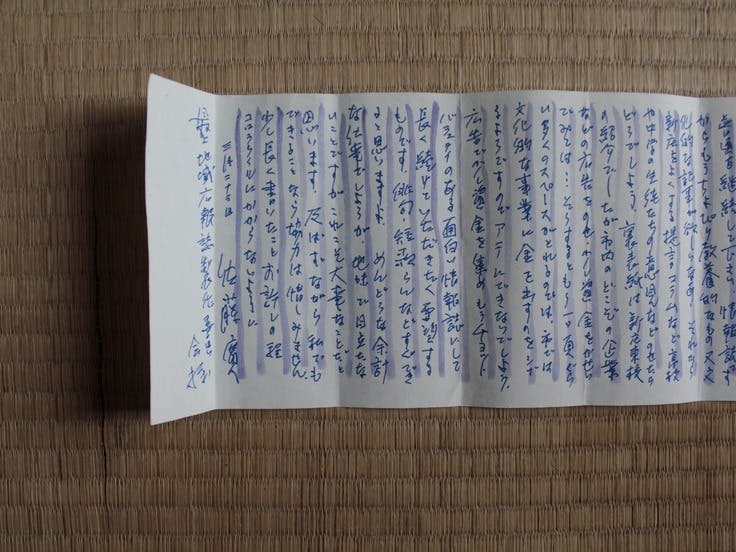 毎月継続して下さい。情報誌です
からもうすこしぴり教養的なもの又文
化的な記事が欲しらなあ、それから
新庄をよくする提言のコラムなど高校
や中学の生徒たちの意見などのせたら
どうでしょう。裏表紙は新庄東校
の紹介でしたが市内のどこぞの企業
などの広告をのせ、資金をかせい
でみては…そうするともう一頁ぐら
い多くのスペースがとれるのでは、市では
文化的な事業に金を出すのを
るようですのでアテにできないでしょう。
広告でも資金を集めもうチョット
バラエティのある面白い情報誌にして
長く続けていただきたく要望する
ものです。俳句、短歌らんなどすぐで
ると思いますよ。めんどうな余計
な仕事でしょうが、地味で目立たな
いことですがこれこそ大事なことだと
思います。及ばずながら私でも
できることなら協力は惜しみません。
少し長く書いたことお許しの程
三月十日
佐藤
地域広報誌製作